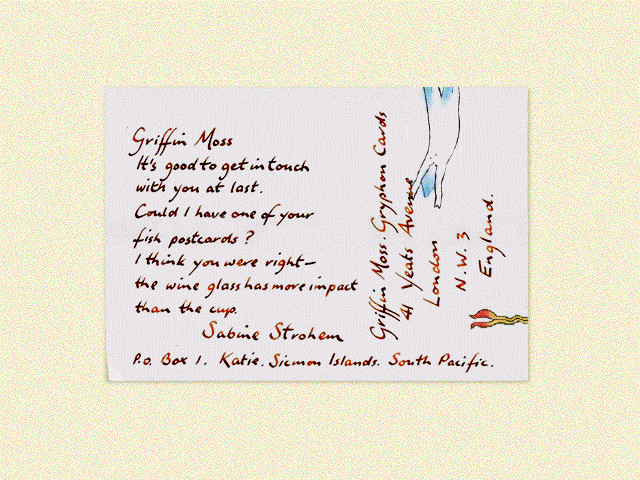 Griffin Moss
It's good to get in touch
with you at last.
Could I have one of your
fish postcards?
I think you were right—
the wine glass has more impact
than the cup.
Sabine Strohem
P.O. Box 1. Katie. Sicmon Islands. South Pacific.
Griffin Moss. Gryphon Cards
41 Yeats Avenue
London
N.W. 3
England.